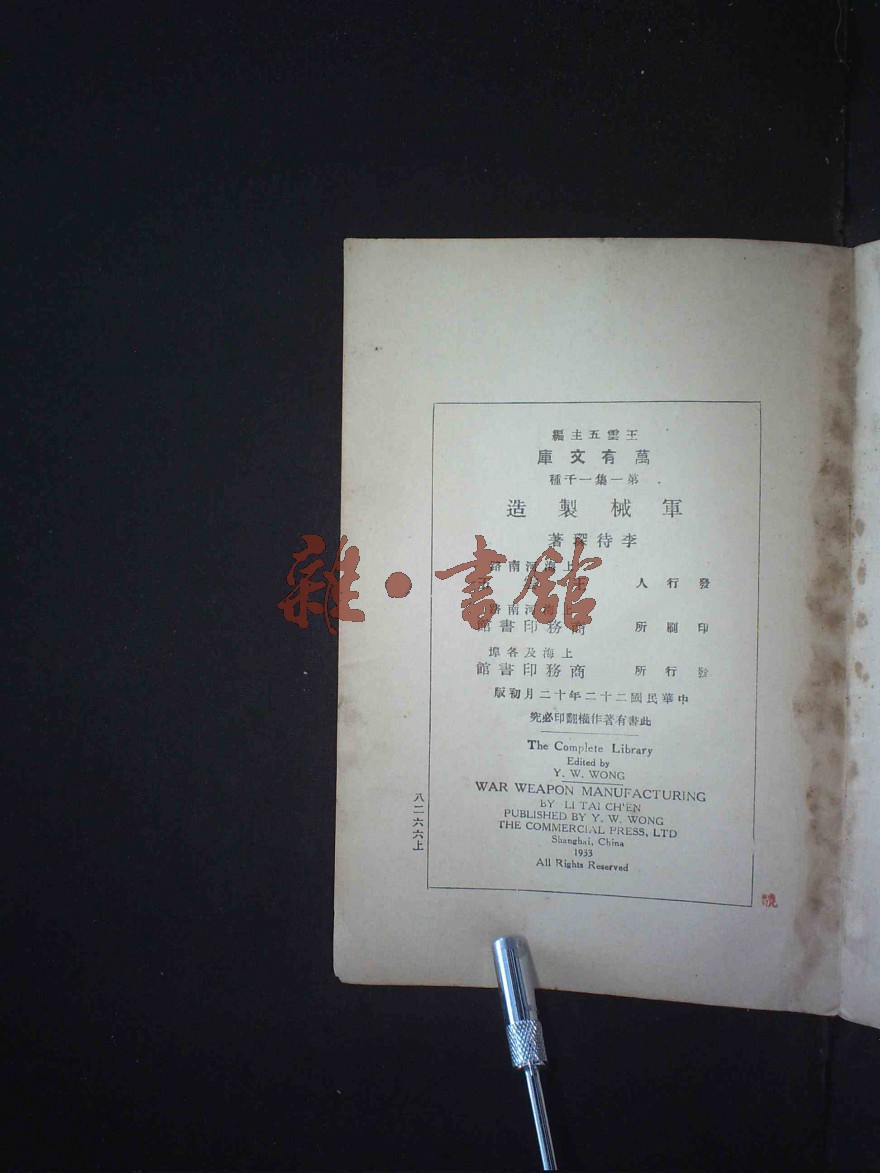 王雲五主編
萬有文庫
第一集一千種
軍械製造
李待琛著
上海河南路
發行人 王雲五
上海河南路
印刷所 商務印書館
上海及各埠
發行所 商務印書館
中華民國二十二年十二月初版
此書有著作權翻印必究
The Complete Library
Edited by
Y. W. WONG
WAR WEAPON MANUFACTURING
BY LI TAI CH'EN
PUBLISHED BY Y. W. WONG
THE COMMERCIAL PRESS, LTD
Shanghai, China
1933
All Rights Reserved
八二六六上
雜·書館